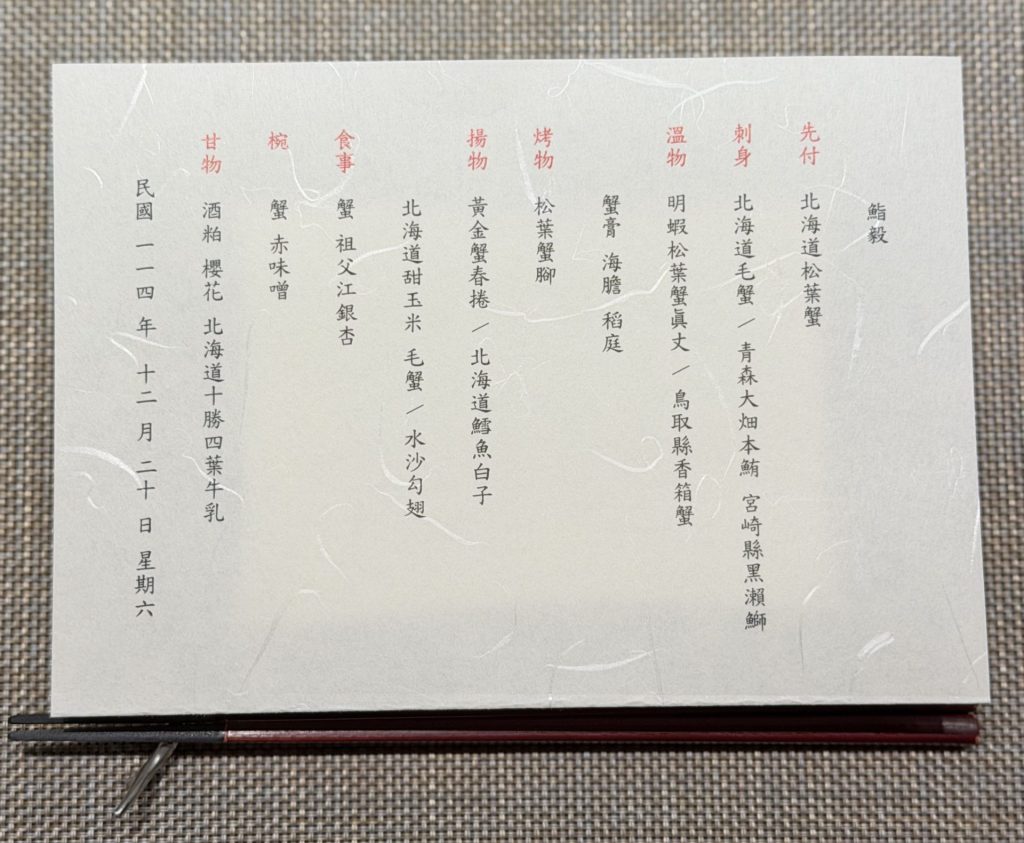 鮨毅
先付 北海道松葉蟹
刺身 北海道毛蟹／青森大畑本鮪 宮崎縣黑瀨鰤
溫物 明蝦松葉蟹眞丈／鳥取縣香箱蟹
蟹膏 海膽 稻庭
烤物 松葉蟹腳
揚物 黃金蟹春捲／北海道鱈魚白子
北海道甜玉米 毛蟹／水沙勾翅
食事 蟹 祖父江銀杏
椀 蟹 赤味噌
甘物 酒粕 櫻花 北海道十勝四葉牛乳
民國 一一四 年 十二 月 二十 日 星期六